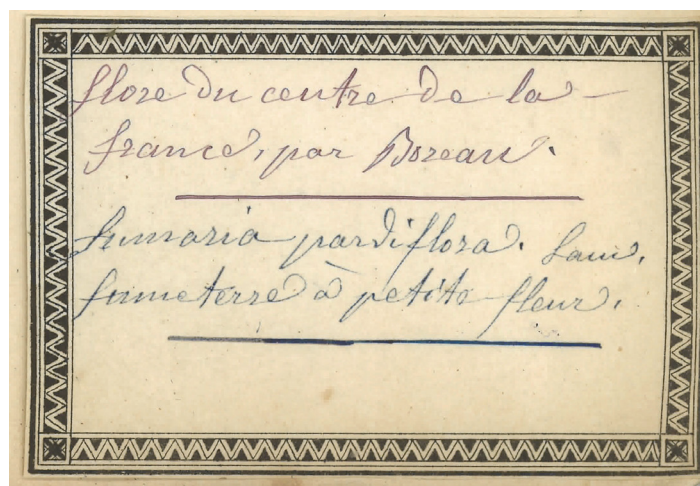 flore du centre de la
france, par Boreau.
fumaria pardiflora. Lam.
fumeterre à petite fleur.